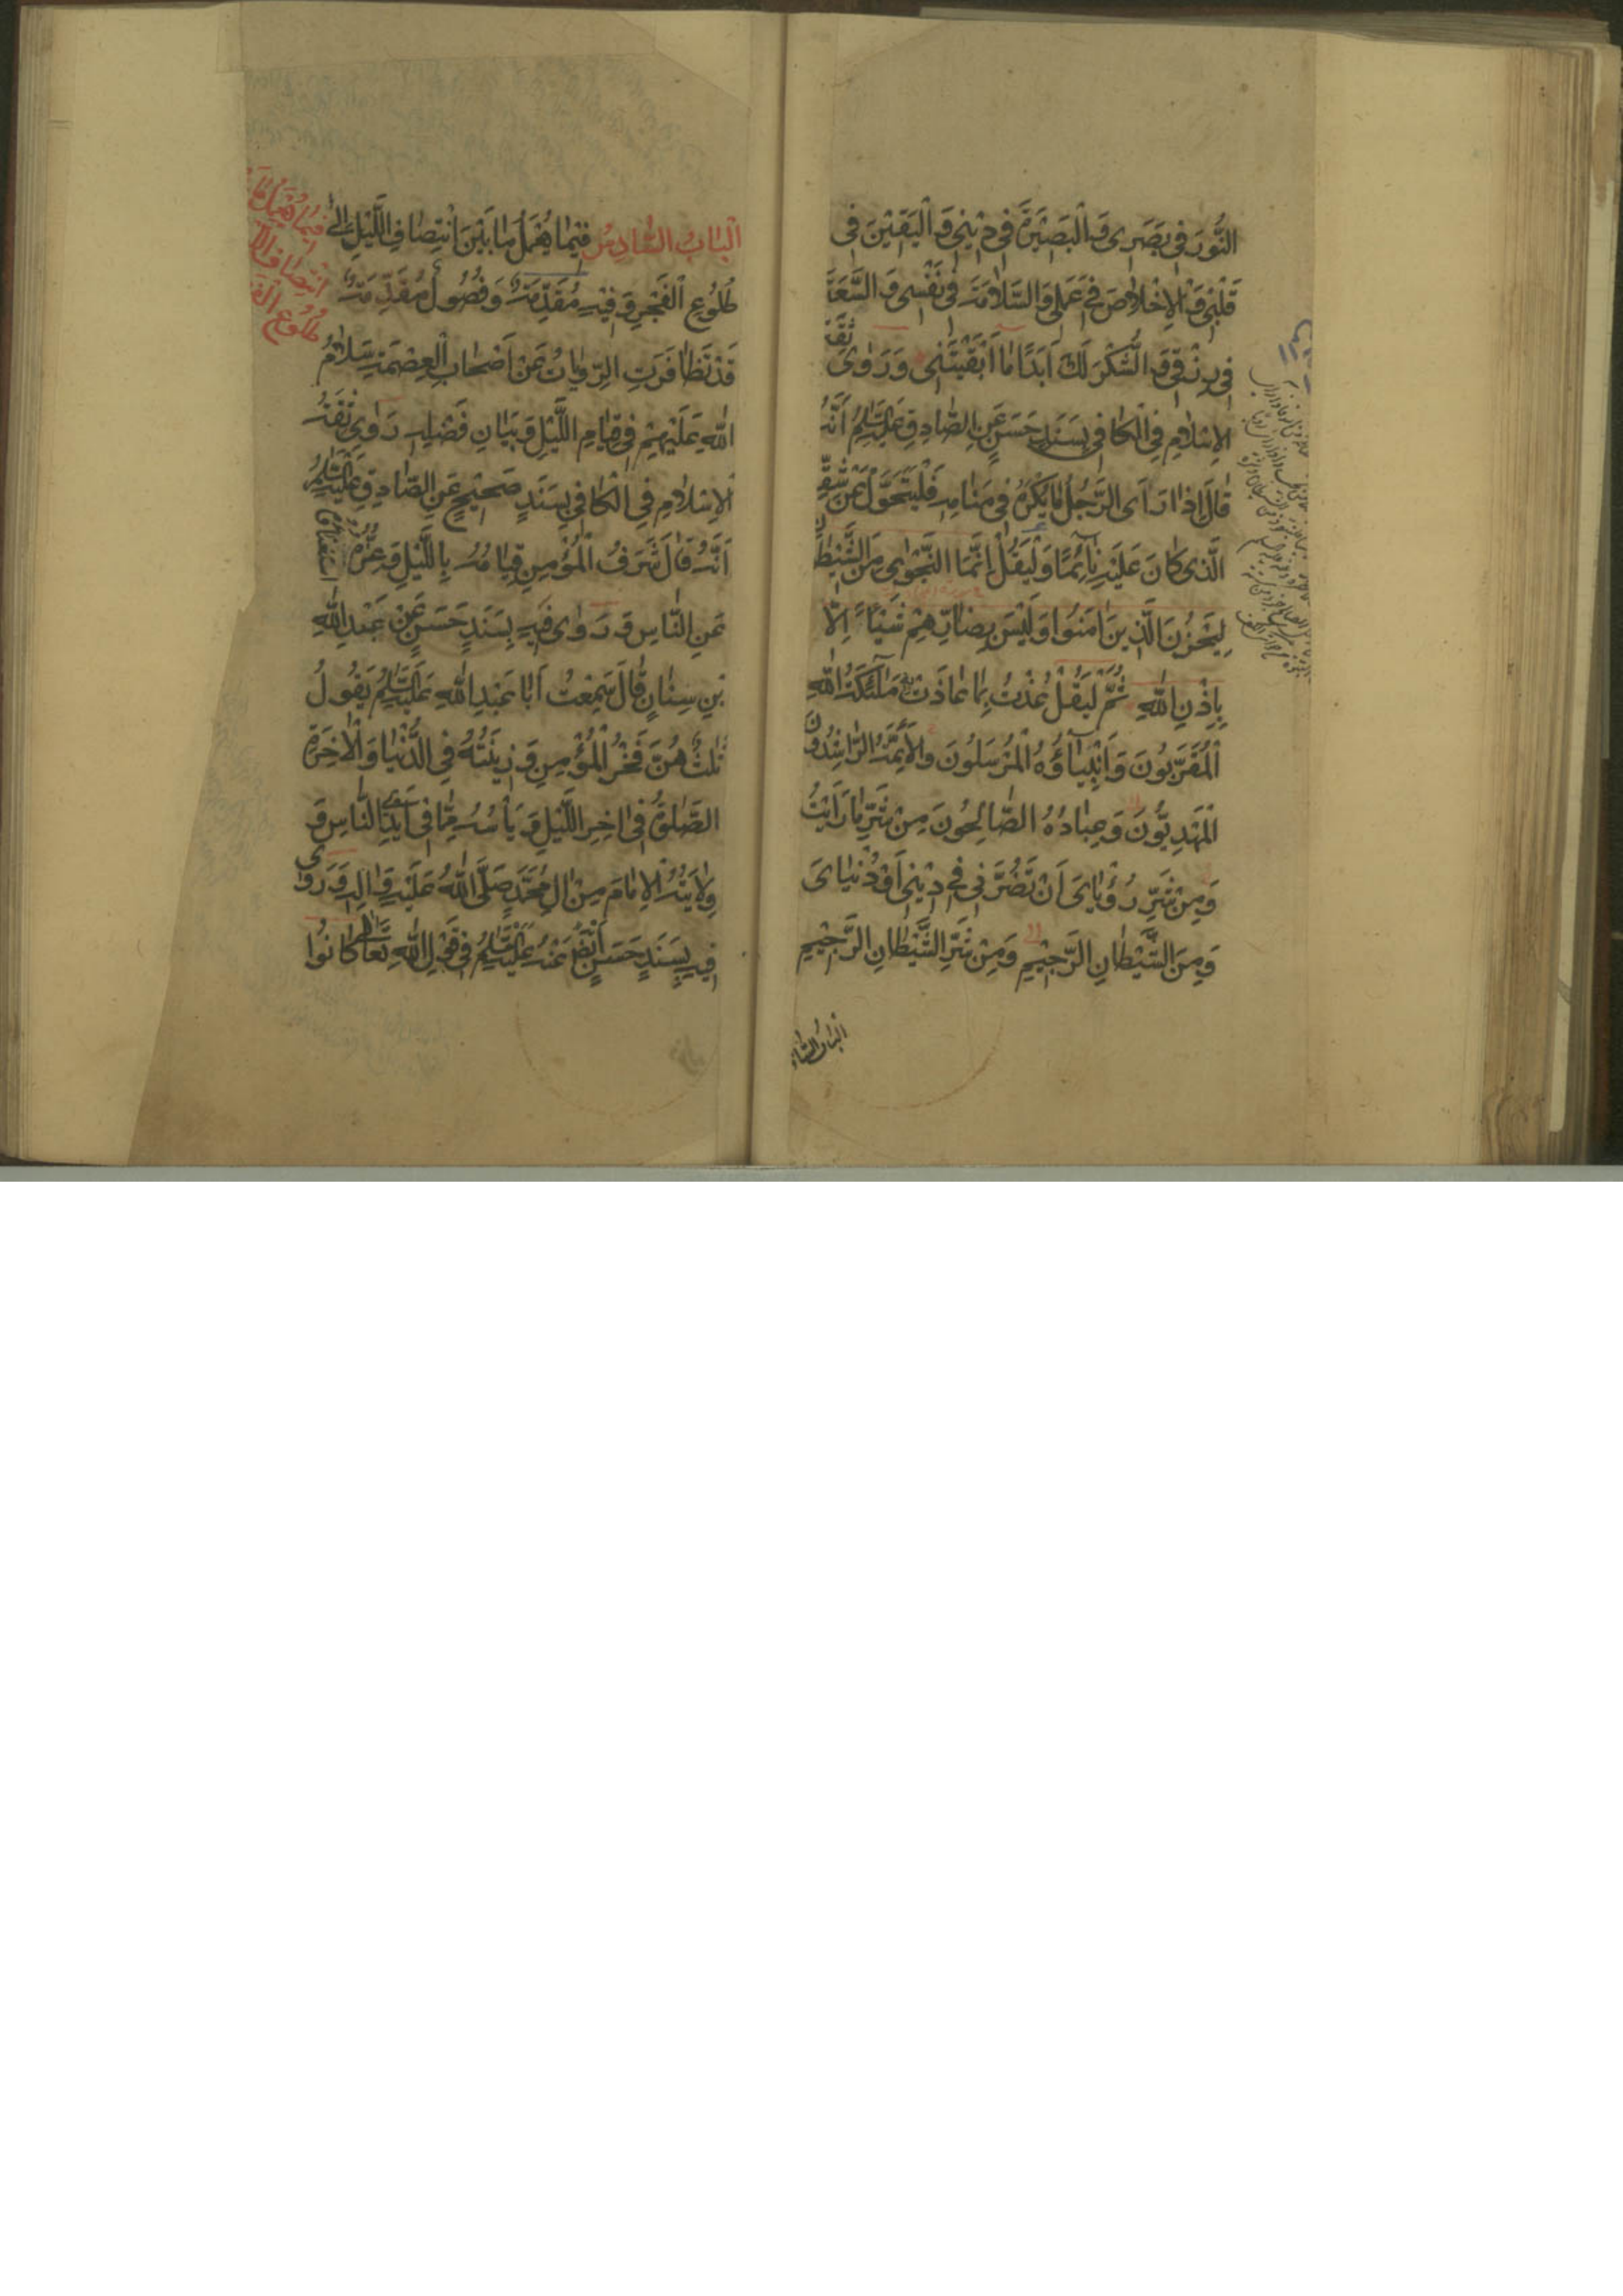 النُّورَ فِي بَصَرِي وَالْبَصِيْرَةَ فِي دِيْنِي وَالْيَقِيْنَ فِي
قَلْبِي وَالْاِخْلَاصَ فِي عَمَلِي وَالسَّلَامَةَ فِي نَفْسِي وَالسَّعَةَ
فِي رِزْقِي وَالشُّكْرَ لَكَ اَبَدًا مَا اَبْقَيْتَنِي وَرَوٰى ثِقَةُ
الْاِسْلَامِ فِي الْكَافِي بِسَنَدٍ حَسَنٍ عَنِ الصَّادِقِ عَلَيْهِ السَّلَامُ اَنَّهُ
قَالَ اِذَا رَاَى الرَّجُلُ مَا يَكْرَهُ فِي مَنَامِهِ فَلْيَتَحَوَّلْ عَنْ شِقِّهِ
الَّذِي كَانَ عَلَيْهِ نَائِمًا وَلْيَقُلْ اِنَّمَا النَّجْوٰى مِنَ الشَّيْطَانِ
لِيَحْزُنَ الَّذِينَ اٰمَنُوا وَلَيْسَ بِضَارِّهِمْ شَيْئًا اِلَّا
بِاِذْنِ اللّٰهِ ثُمَّ لْيَقُلْ عُذْتُ بِمَا عَاذَتْ بِهِ مَلٰٓئِكَةُ اللّٰهِ
الْمُقَرَّبُونَ وَاَنْبِيَآؤُهُ الْمُرْسَلُونَ وَالْاَئِمَّةُ الرَّاشِدُونَ
الْمَهْدِيُّونَ وَعِبَادُهُ الصَّالِحُونَ مِنْ شَرِّ مَا رَاَيْتُ
وَمِنْ شَرِّ رُؤْيَايَ اَنْ تَضُرَّنِي فِي دِيْنِي اَوْ دُنْيَايَ
وَمِنَ الشَّيْطَانِ الرَّجِيْمِ وَمِنْ شَرِّ الشَّيْطَانِ الرَّجِيْمِ
اَلْبَابُ السَّا
اَلْبَابُ السَّادِسُ فِيْمَا يُعْمَلُ مَا بَيْنَ انْتِصَافِ اللَّيْلِ اِلٰى
طُلُوعِ الْفَجْرِ وَفِيْهِ مُقَدِّمَةٌ وَفُصُولٌ مُقَدِّمَةٌ
قَدْ تَظَافَرَتِ الرِّوَايَاتُ عَنْ اَصْحَابِ الْعِصْمَةِ سَلَامُ
اللّٰهِ عَلَيْهِمْ فِي قِيَامِ اللَّيْلِ وَبَيَانِ فَضْلِهِ رَوٰى ثِقَةُ
الْاِسْلَامِ فِي الْكَافِي بِسَنَدٍ صَحِيْحٍ عَنِ الصَّادِقِ عَلَيْهِ السَّلَامُ
اَنَّهُ قَالَ شَرَفُ الْمُؤْمِنِ قِيَامُهُ بِاللَّيْلِ وَعِزُّهُ اسْتِغْنَاؤُهُ
عَنِ النَّاسِ وَرَوٰى فِيهِ بِسَنَدٍ حَسَنٍ عَنْ عَبْدِ اللّٰهِ
بْنِ سِنَانٍ قَالَ سَمِعْتُ اَبَا عَبْدِ اللّٰهِ عَلَيْهِ السَّلَامُ يَقُولُ
ثَلٰثٌ هُنَّ فَخْرُ الْمُؤْمِنِ وَزِيْنَتُهُ فِي الدُّنْيَا وَالْاٰخِرَةِ
الصَّلٰوةُ فِي اٰخِرِ اللَّيْلِ وَيَأْسُهُ مِمَّا فِي اَيْدِي النَّاسِ وَ
وِلَايَتُهُ الْاِمَامَ مِنْ اٰلِ مُحَمَّدٍ صَلَّى اللّٰهُ عَلَيْهِ وَاٰلِهِ وَرَوٰى
فِيهِ بِسَنَدٍ حَسَنٍ اَيْضًا عَنْهُ عَلَيْهِ السَّلَامُ فِي قَوْلِ اللّٰهِ تَعَالٰى كَانُوا
فِيْمَا يُعْمَلُ مَا
انْتِصَافِ
طُلُوعِ الْفَ